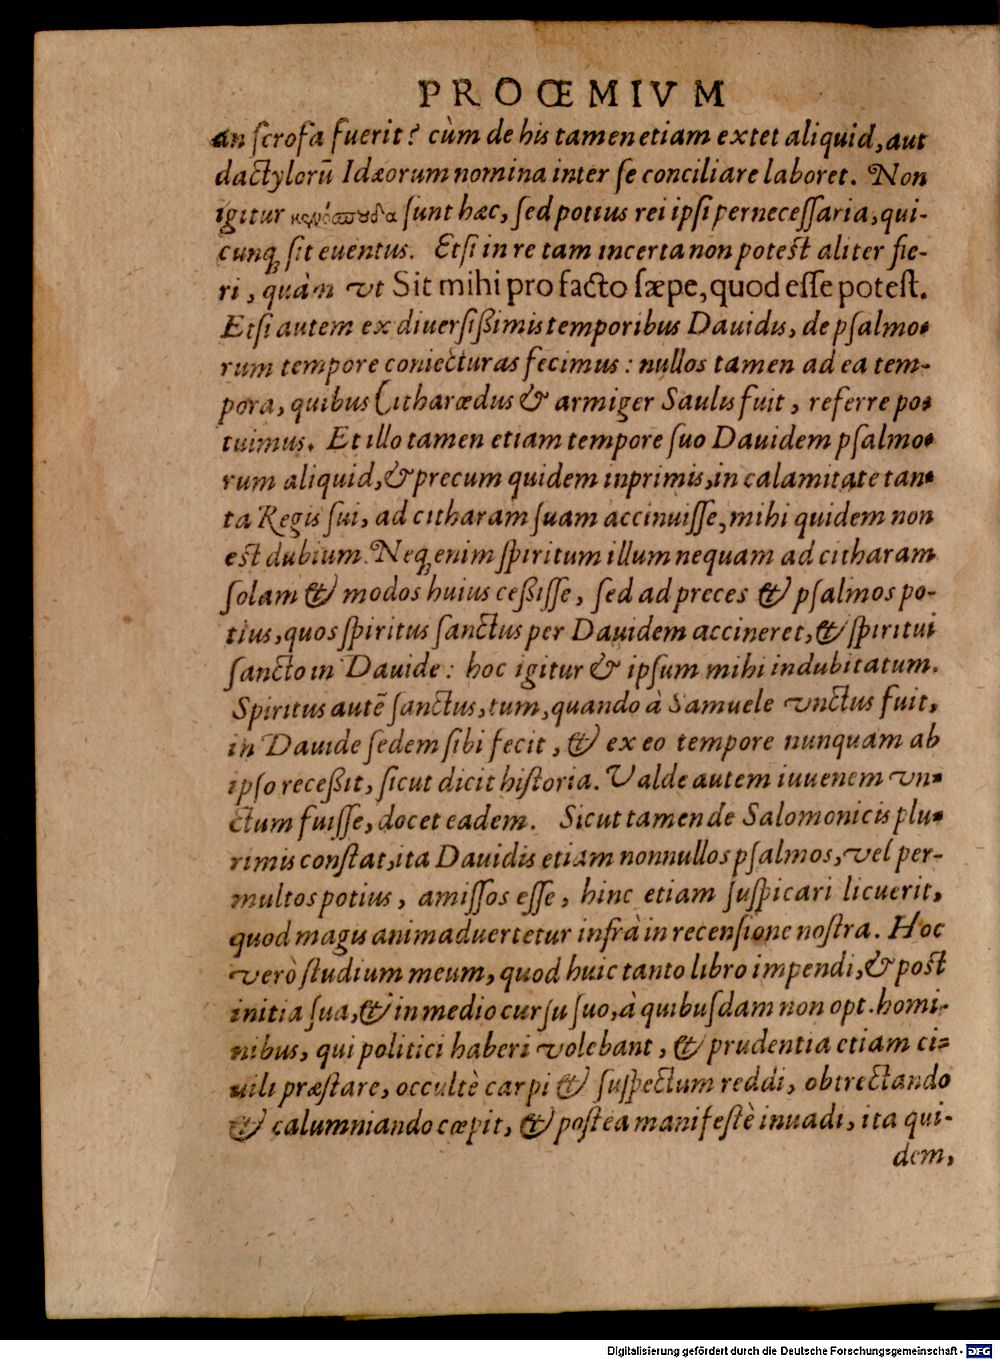 PROŒMIVM
an ſcrofa fuerit? cùm de his tamen etiam extet aliquid, aut
dactylorū Idæorum nomina inter ſe conciliare laboret. Non
igitur ſunt hæc, ſed potius rei ipſi perneceſſaria, qui-
cunq; ſit euentus. Etſi in re tam incerta non poteſt aliter fie-
ri, quàm vt Sit mihi pro facto ſæpe, quod eſſe poteſt.
Etſi autem ex diuerſißimis temporibus Dauidis, de pſalmo-
rum tempore coniecturas fecimus: nullos tamen ad ea tem-
pora, quibus Citharœdus & armiger Saulis fuit, referre po-
tuimus. Et illo tamen etiam tempore ſuo Dauidem pſalmo-
rum aliquid, & precum quidem inprimis, in calamitate tan-
ta Regis ſui, ad citharam ſuam accinuiſſe, mihi quidem non
eſt dubium. Neq; enim ſpiritum illum nequam ad citharam
ſolam & modos huius ceßiſſe, ſed ad preces & pſalmos po-
tius, quos ſpiritus ſanctus per Dauidem accineret, & ſpiritui
ſancto in Dauide: hoc igitur & ipſum mihi indubitatum.
Spiritus autē ſanctus, tum, quando à Samuele vnctus fuit,
in Dauide ſedem ſibi fecit, & ex eo tempore nunquam ab
ipſo receßit, ſicut dicit hiſtoria. Valde autem iuuenem vn-
ctum fuiſſe, docet eadem. Sicut tamen de Salomonicis plu-
rimis conſtat, ita Dauidis etiam nonnullos pſalmos, vel per-
multos potius, amiſſos eſſe, hinc etiam ſuſpicari licuerit,
quod magis animaduertetur infrà in recenſione noſtra. Hoc
verò ſtudium meum, quod huic tanto libro impendi, & poſt
initia ſua, & in medio curſu ſuo, à quibuſdam non opt. homi-
nibus, qui politici haberi volebant, & prudentia etiam ci-
uili præſtare, occultè carpi & ſuſpectum reddi, obtrectando
& calumniando cœpit, & poſtea manifeſtè inuadi, ita qui-
dem,
Digitalisierung gefördert durch die Deutsche Forschungsgemeinschaft - DFG